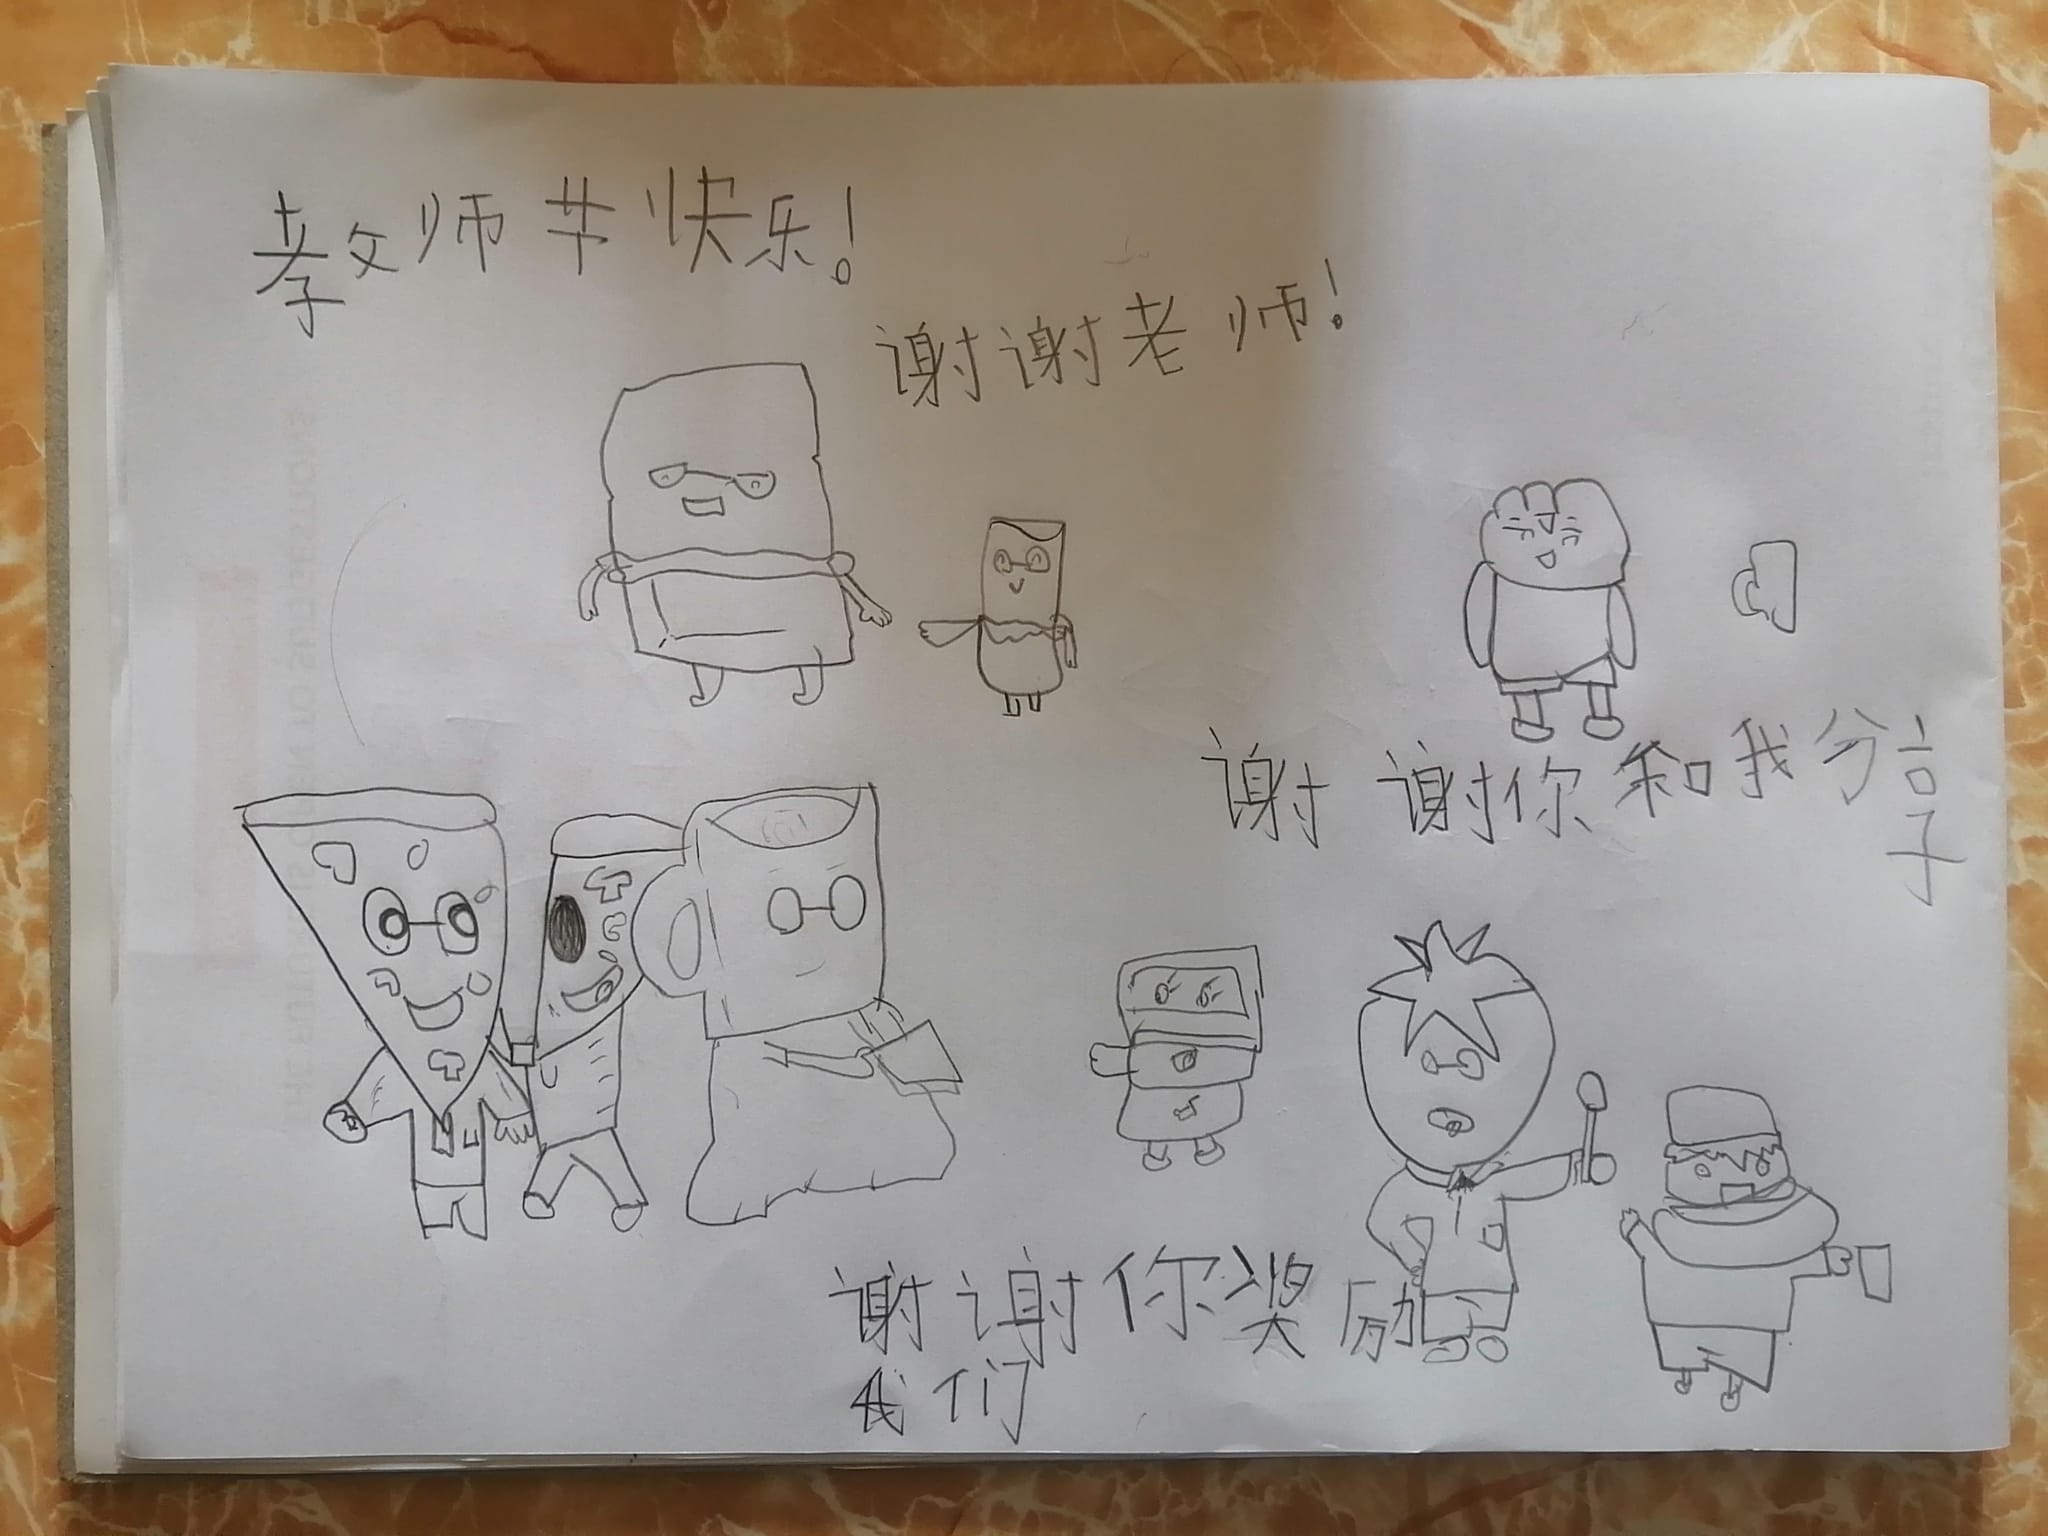 教师节快乐!
谢谢老师!
谢谢你和我分享
谢谢你奖励
我们